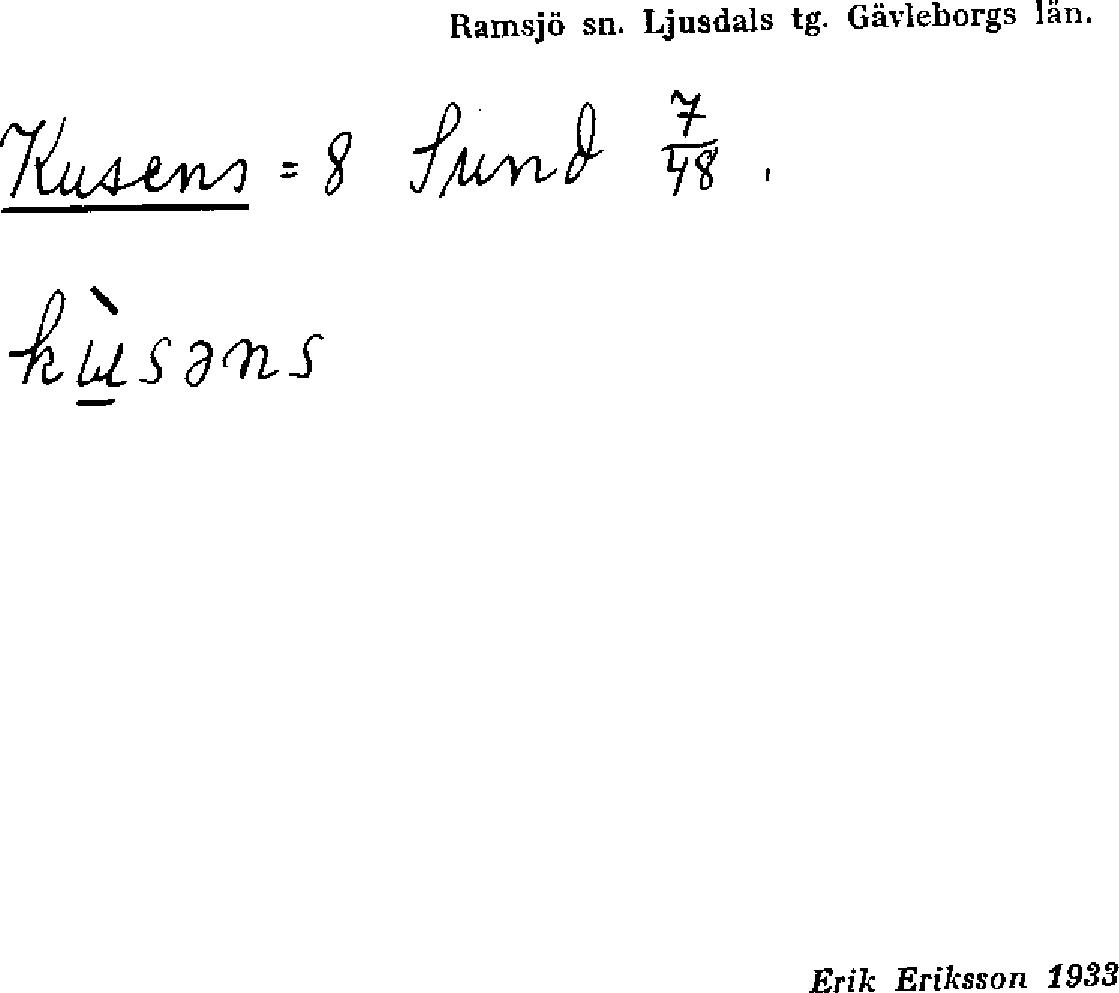 Ramsjö sn. Ljusdals tg. Gävleborgs län.
Kusens = 8 Sund 7/48.
kùsəns
Erik Eriksson 1933